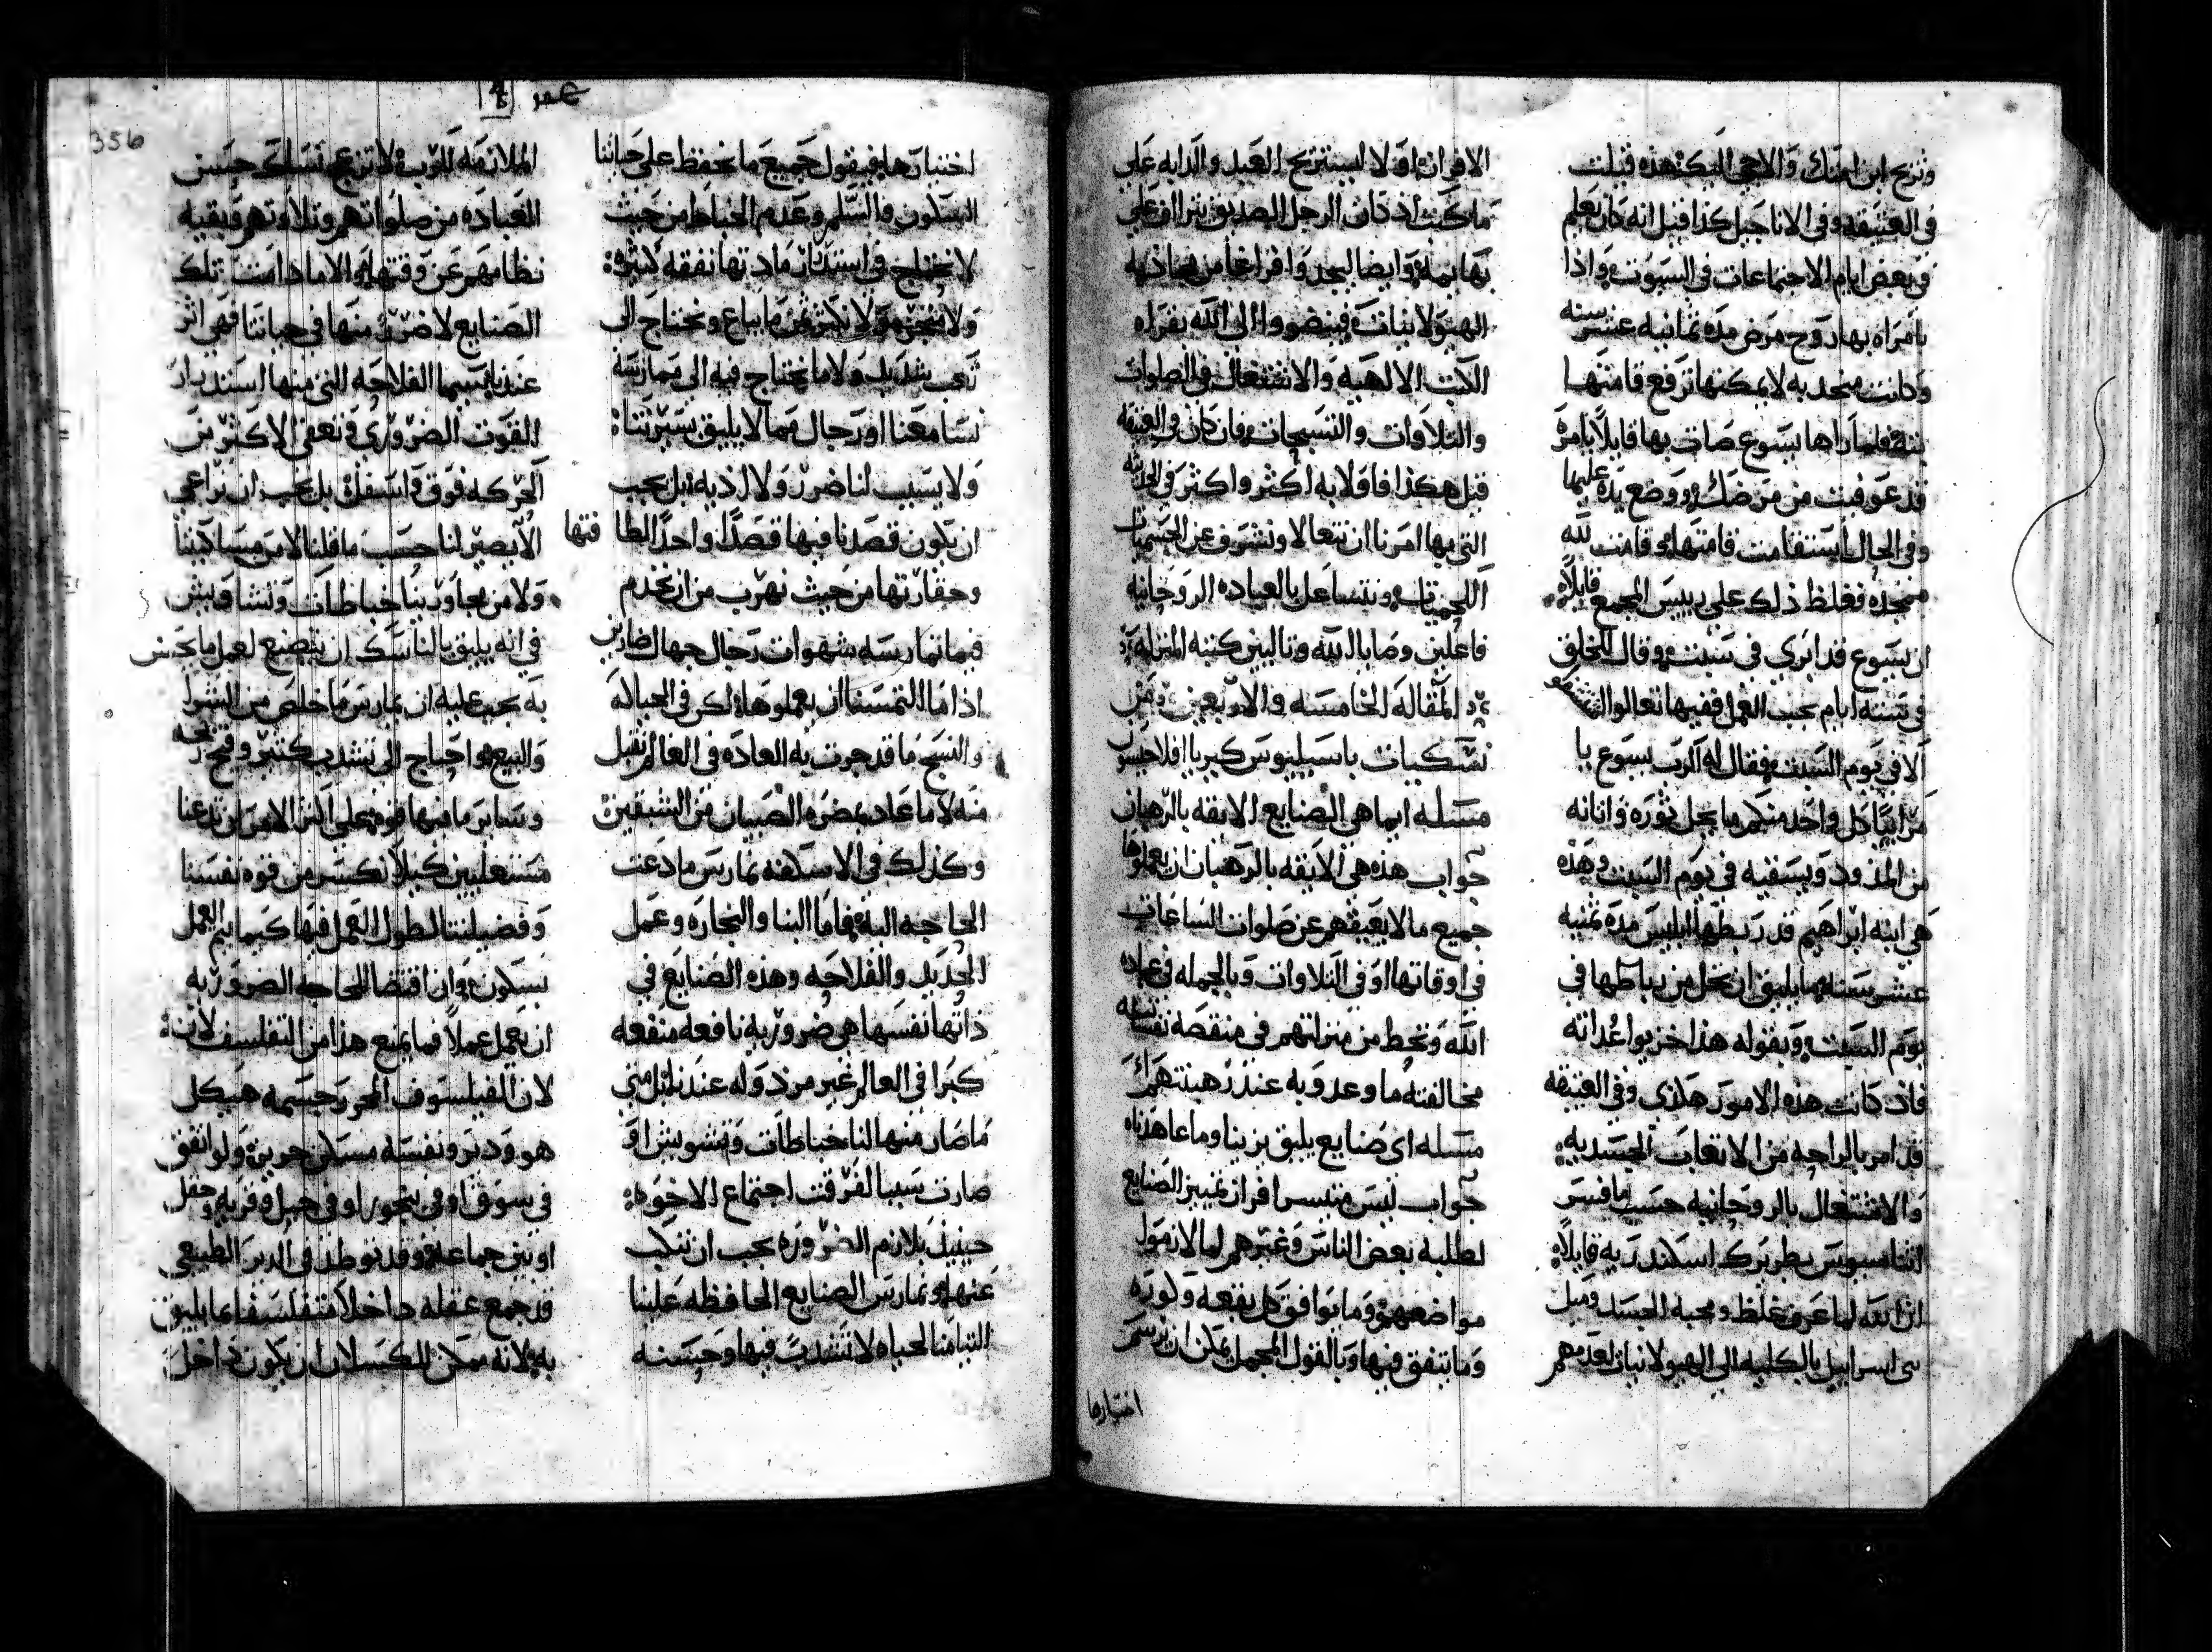 وتزيح ابن امتك والاجي اليك هذه قيلت
في العتيقه وفي الاناجيل كذا قيل انه كان يعلم
في بعض ايام الاجتماعات في السبوت واذا
بامراه بها روح مرض مده ثمانيه عشر سنه
وكانت منحديه لا يمكنها ترفع قامتها
بته فلما راها يسوع صات بها قايلا يا مره
قد عوفيت من مرضك ووضع يده عليها
وفي الحال استقامت قامتها وقامت لله
ممجده فغلظ ذلك على رييس المجمع قايلا
ان يسوع قد ابري في سبت وقال للخلق
في سته ايام يجب العمل ففيها تعالوا
الا في يوم السبت فقال له الرب يسوع يا
مراييا كل واحد منكم ما يحل ثوره واتانه
من المذود ويسقيه في يوم السبت وهذه
هي ابنه ابراهيم قد ربطها ابليس مده ثمنيه
عشر سنه ما يليق ان تحل من رباطها في
يوم السبت وبقوله هذا خزيوا اعدائه
فاذ كانت هذه الامور هكذي وفي العتيقه
قد امر بالراحه من الاتعاب الجسديه
والاشتغال بالروحانيه حسب ما فسر
اثناسيوس بطريرك اسكندريه قايلا
ان الله لما عرف غلظ ومحبه الجسد وميل
بني اسراييل بالكليه الي الهيولانيات
الاقران اولا ليستريح العبد والدابه على
ما كتب اذ كان الرجل الصديق يتراف على
بهايمه وايضا ليجدوا فراغا من مجاذبه
الهيولانيات فيتضووا الى الله بقراه
الكتب الالهيه والاشتغال في الصلوات
والتلاوات والتسبيحات فان كان في العتيقه
قيل هكذا فاولا به اكثر واكثر في الحديثه
التي بها امرنا ان نتعالا ونشرف عن الجسميات
اللحميات ونتشاغل بالعباده الروحانيه
فاعلين وصايا الله وتاليين كتبه المنزله
المقاله الخامسه والاربعين من
نسكيات باسيليوس كيريا افلاحيسن
مسله ايما هي الصنايع الايقه بالرهبان
جواب هذه هي الايقه بالرهبان ان يعملوها
جميع ما لا يعيقهم عن صلوات الساعات
في اوقاتها او في التلاوات وبالجمله في عباده
الله وتحط من منزلتهم في منقصه نفسانيه
مخالفته ما وعدو به عند رهبنتهم
مسله اي صنايع يليق بزينا وما عاهدناه
جواب ليس متيسر افراز تمييز الصنايع
لطلبه بعض الناس وغيرهم لما لا
مواضعهم وما يوافق كل بقعه وكوره
وما يتفق فيها وبالقول المجمل يمكن ان نرسم
اختيارها
اختيارها فيقول جميع ما يحفظ على حياتنا
السكون والسلم وعدم الخباط من حيث
لا نحتاج في استدراك مادتها نفقه كثيره
ولا متجر ولا بكثير ثمن ما يباع ونحتاج الى
تعب شديد ولا ما نحتاج فيه الى ممارسه
نسا معنا او رجال مما لا يليق بسيرتنا
ولا يسبب لنا ضرر ولا اذيه بل يجب
ان يكون قصدنا فيها قصدا واحدا لطافتها
وحقارتها من حيث نهرب من ان نخدم
فيما نمارسه شهوات رجال جهال ضارين
اذا ما التمسنا ان يعملوها لكن في الحياكه
والنسج ما قد جرت به العاده في العالم نقبل
منه لا ما عاد بمضره الصبيان من الشبقين
وكذلك في الاسكفه نمارس ما دعت
الحاجه اليه فاما البنا والنجاره وعمل
الحديد والفلاحه وهذه الصنايع في
ذاتها نفسها هي ضروريه نافعه منفعه
كبرا في العالم غير مرذوله عندنا لكن متي
ما صار منها لنا خباطات وتشويش او
صارت سببا لفرقت اجتماع الاخوه
حينيذ بلازم الضروره يجب ان نتنكب
عنها ونمارس الصنايع الحافظه علينا
التيامنا لحياه لا تشذب فيها وحسنه
عمر
356
الملازمه للرب ولا تزعج نساك حسن
العباده من صلواتهم وتلاوتهم وبقيه
نظامهم عن وقتها والا ما دامت تلك
الصنايع لا ضرر منها في حياتنا فهي اثر
عندنا لا سيما الفلاحه التي منها استدراك
القوت الضروري وتعفي الاكثر من
الحركه فوق واسفل بل يجب ان تراعي
الا يصير لنا حسب ما قلنا لا من مساكيننا
ولا من مجاوريينا خباطات وتشاويش
في انه يليق بالناسك ان يتضع لعمل ما
به يجب عليه ان يمارس ما خلص من الشرا
والبيع واحتاج الى تشدب كثير وقبح ربحه
وساير ما فيها قوه على اكثر الامر ان تدعنا
مستعليين كيلا نكسر من قوه نفسنا
وفضيلتنا لطول العمل فيها كيما يتم العمل
بسكون وان اقتضا الحاجه الضروريه
ان يعمل عملا فما يمنع هذا من التفلسف لانه
لان الفيلسوف المحرر جسمه هيكل
هو ودير ونفسه مسكن حريز ولو اتفق
في سوق او في بيعه او في جبل او قريه وحقل
او بين جماعه وقد توطد في الدير الطبيعي
قد جمع عقله داخلا متفلسفا ما يليق
به لانه ممكن للكسلان ان يكون داخل